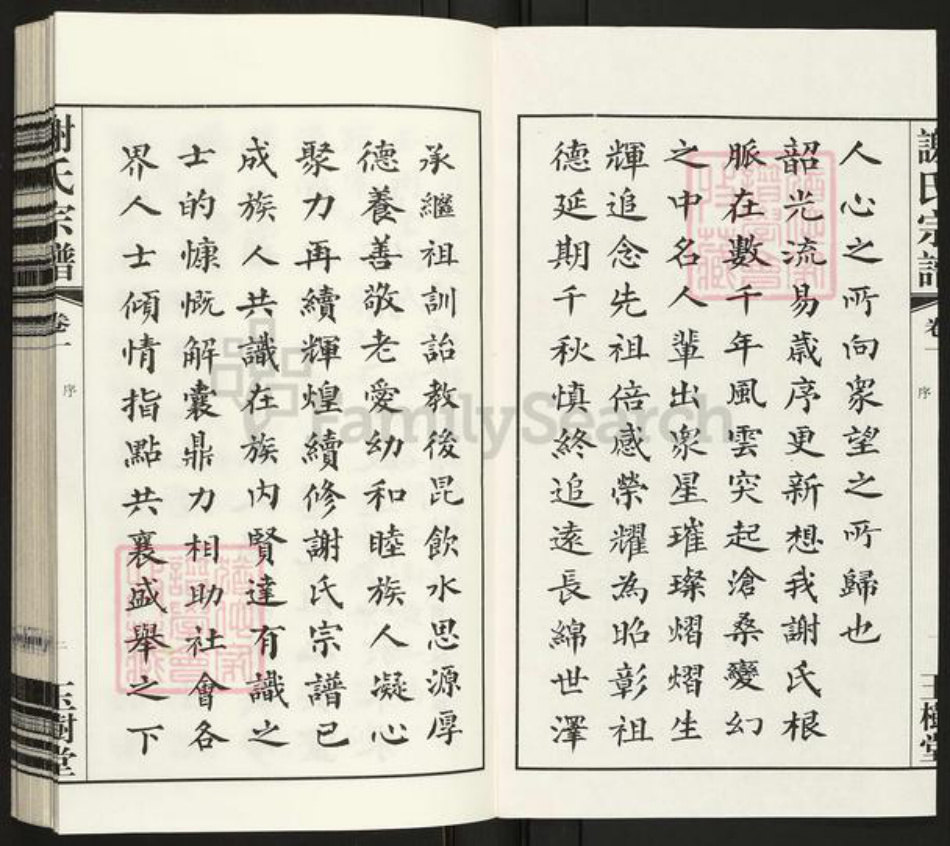 謝氏宗譜
卷一
序
玉樹堂
人心之所向衆望之所歸也
韶光流易歲序更新想我謝氏根
脈在數千年風雲突起滄桑變幻
之中名人輩出衆星璀璨熠熠生
輝追念先祖倍感榮耀為昭彰祖
德延期千秋慎終追遠長綿世澤
承繼祖訓詒教後昆飲水思源厚
德養善敬老愛幼和睦族人凝心
聚力再續輝煌續修謝氏宗譜已
成族人共識在族內賢達有識之
士的慷慨解囊鼎力相助社會各
界人士傾情指點共襄盛舉之下
謝氏宗譜
卷一
序
二
玉樹堂
FamilySearch